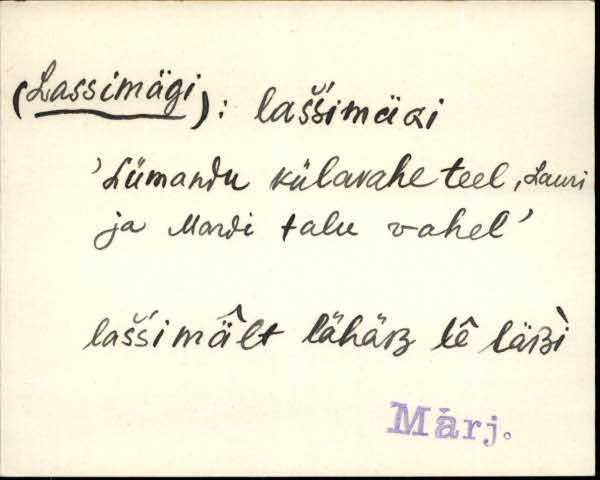 (Lassimägi): laššimäɢi
'Lümandu külavahe teel, Lauri
ja Mardi talu vahel'
lašši mä̂lt lähäʙ tê läʙì
Märj.